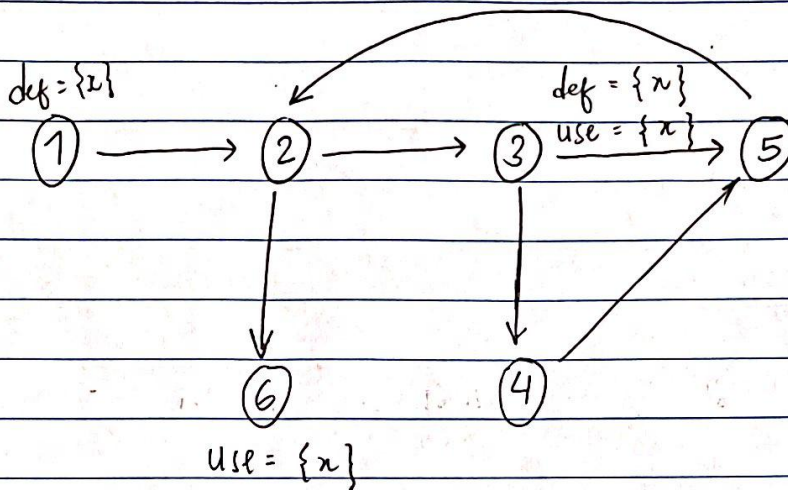 def = {x}
def = {x}
use = {x}
1
2
3
5
6
4
use = {x}